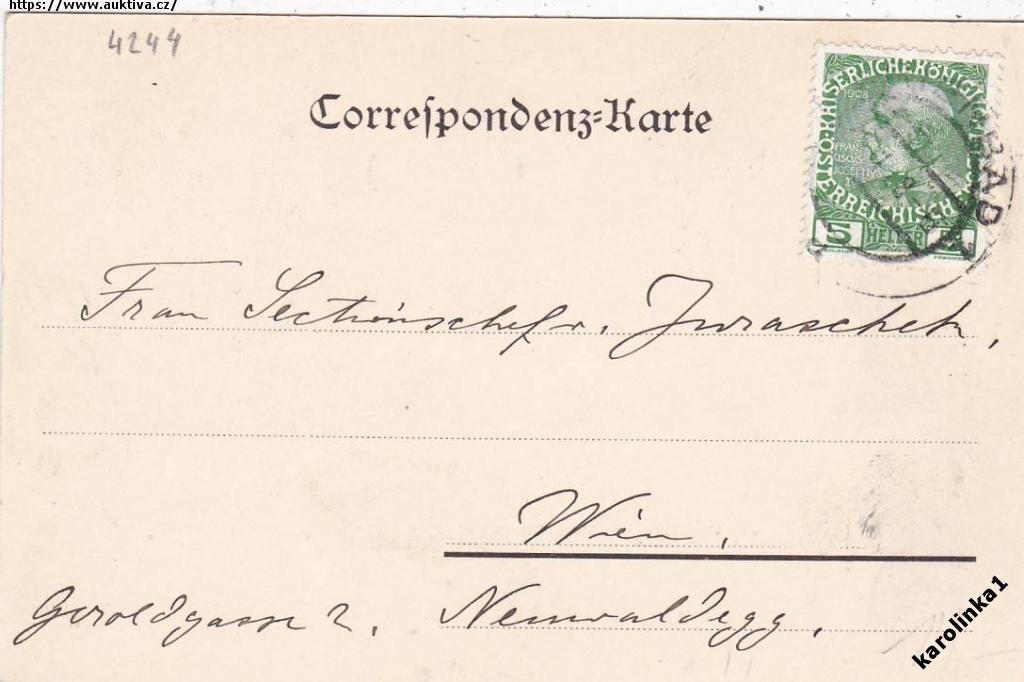 https://www.auktiva.cz/
4244
Correspondenz-Karte
KAISERLICHE KÖNIGLICHE
ÖSTERREICHISCHE
1908
5 HELLER 5
BAD
Frau Sectionschef v. Juraschek,
Wien,
Geroldgasse 2. Neuwaldegg.
karolinka1